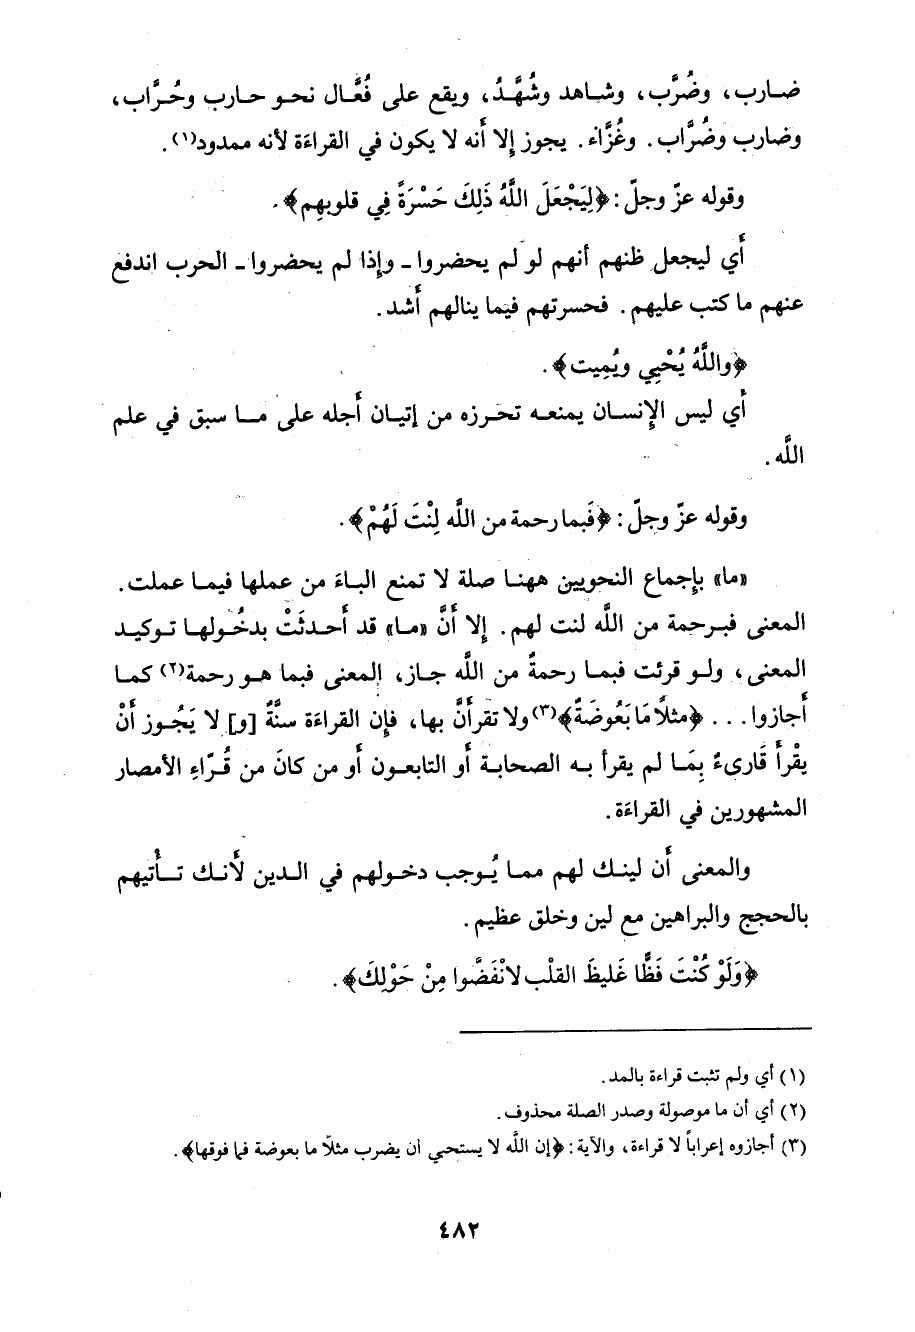 ضارب، وضُرَّب، وشاهد وشُهَّدُ، ويقع على فُعَّال نحو حارب وحُرَّاب،
وضارب وضُرَّاب. وغُزَّاء. يجوز إلا أَنه لا يكون في القراءَة لأنه ممدود(١).
وقوله عزّ وجلّ: ﴿لِيَجْعَلَ اللَّهُ ذَلِكَ حَسْرَةً فِي قلوبهِم﴾.
أَي ليجعل ظنهم أنهم لو لم يحضروا - وإذا لم يحضروا - الحرب اندفع
عنهم ما كتب عليهم. فحسرتهم فيما ينالهم أَشد.
﴿واللَّهُ يُحْيِي ويُمِيت﴾.
أَي ليس الإنسان يمنعه تحرزه من إتيان أَجله على ما سبق في علم
اللَّه.
وقوله عزّ وجلّ: ﴿فَبما رحمة من اللَّه لِنْتَ لَهُمْ﴾.
«ما» بإجماع النحويين ههنا صلة لا تمنع الباءَ من عملها فيما عملت.
المعنى فبرحمة من اللَّه لنت لهم. إلا أَنَّ «ما» قد أَحدثَتْ بدخُولها توكيد
المعنى، ولو قرئت فبما رحمةٌ من اللَّه جاز، المعنى فبما هو رحمة(٢) كما
أَجازوا... ﴿مثلًا مَا بَعُوضَةٌ﴾(٣) ولا تقرأَنَّ بها، فإن القراءَة سنَّةٌ [و] لا يَجُوز أنْ
يقْرأَ قَارىءٌ بِمَا لم يقرأ به الصحابة أَو التابعون أَو من كانَ من قُرّاءِ الأمصار
المشهورين في القراءَة.
والمعنى أَن لينك لهم مما يُوجب دخولهم في الدين لأَنك تأْتيهم
بالحجج والبراهين مع لين وخلق عظيم.
﴿وَلَوْ كُنْتَ فَظًّا غَلِيظَ القلْب لانْفَضُّوا مِنْ حَوْلِكَ﴾.
(١) أي ولم تثبت قراءة بالمد.
(٢) أي أن ما موصولة وصدر الصلة محذوف.
(٣) أجازوه إعراباً لا قراءة، والآية: ﴿إن اللَّه لا يستحيي ان يضرب مثلًا ما بعوضة فما فوقها﴾.
٤٨٢